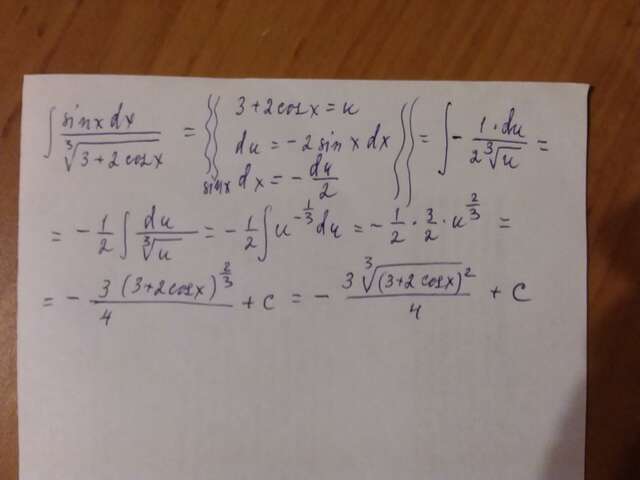 ∫ sinx dx / ∛(3+2cosx) = { 3+2cosx = u
du = -2 sin x dx
sinx dx = - du/2 } = ∫ - 1·du / 2∛u =
= - 1/2 ∫ du/∛u = - 1/2 ∫ u^(-1/3) du = - 1/2 · 3/2 · u^(2/3) =
= - 3 (3+2cosx)^(2/3) / 4 + C = - 3 ∛(3+2cosx)² / 4 + C